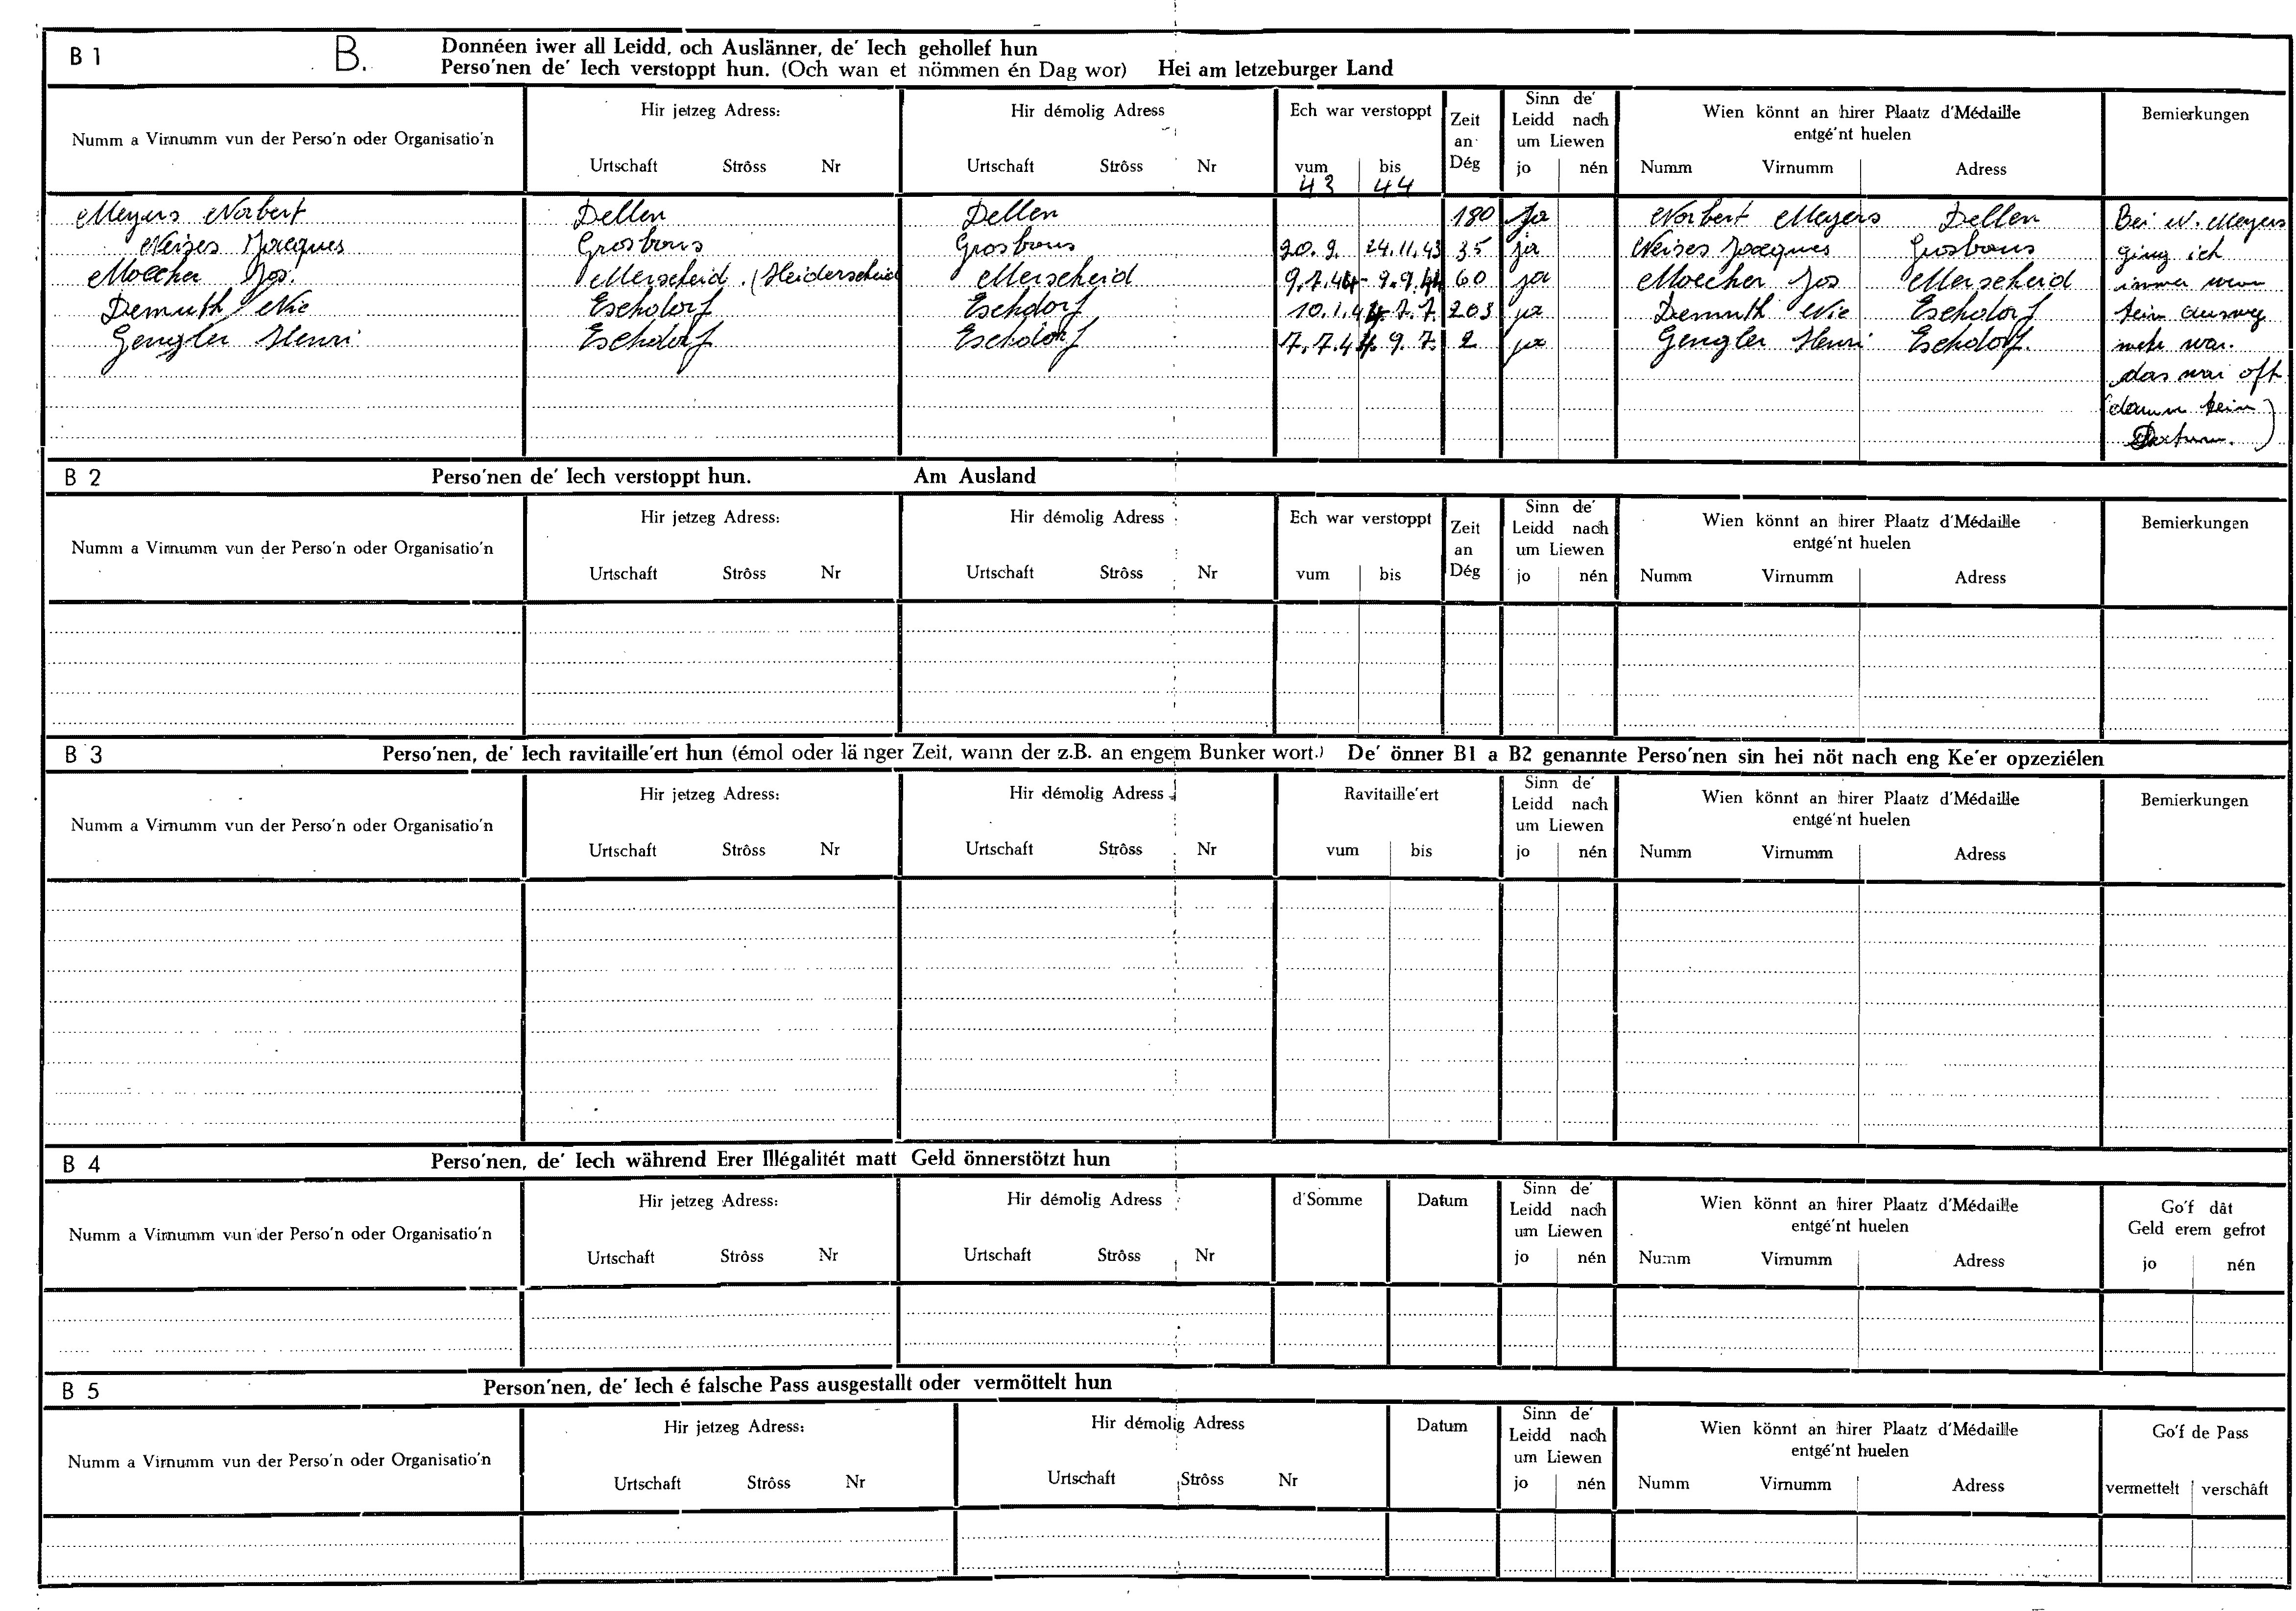 B 1 B. Donnéen iwer all Leidd, och Auslänner, de' Iech gehollef hun
Perso'nen de' Iech verstoppt hun. (Och wan et nömmen én Dag wor) Hei am letzeburger Land
Numm a Virnumm vun der Perso'n oder Organisatio'n
Hir jetzeg Adress:
Urtschaft Strôss Nr
Hir démolig Adress
Urtschaft Strôss Nr
Ech war verstoppt
vum bis
43 44
Zeit
an
Dég
Sinn de'
Leidd nach
um Liewen
jo nén
Wien könnt an hirer Plaatz d'Médaille
entgé'nt huelen
Numm Virnumm Adress
Bemierkungen
Meyers Norbert Dellen Dellen 180 Ja Norbert Meyers Dellen Bei N. Meyers
Neises Jacques Grosbous Grosbous 20.9. 24.11.43 35 ja Neises Jacques Grosbous ging ich
Moecher Jos. Merscheid (Heiderscheid Merscheid 9.7.44 - 9.9.44 60 ja Moecher Jos Merscheid immer wen
Demuth Nic Eschdorf Eschdorf 10.1.44 7.7. 203 ja Demuth Nic Eschdorf kein ausweg
Gengler Henri Eschdorf Eschdorf 7.7.44. 9.7. 2 ja Gengler Henri Eschdorf. mehr war.
das war oft
(darum kein
Datum.)
B 2 Perso'nen de' Iech verstoppt hun. Am Ausland
Numm a Virnumm vun der Perso'n oder Organisatio'n
Hir jetzeg Adress:
Urtschaft Strôss Nr
Hir démolig Adress
Urtschaft Strôss Nr
Ech war verstoppt
vum bis
Zeit
an
Dég
Sinn de'
Leidd nach
um Liewen
jo nén
Wien könnt an hirer Plaatz d'Médaille
entgé'nt huelen
Numm Virnumm Adress
Bemierkungen
B 3 Perso'nen, de' Iech ravitaille'ert hun (émol oder länger Zeit, wann der z.B. an engem Bunker wort.) De' önner B1 a B2 genannte Perso'nen sin hei nöt nach eng Ke'er opzeziélen
Numm a Virnumm vun der Perso'n oder Organisatio'n
Hir jetzeg Adress:
Urtschaft Strôss Nr
Hir démolig Adress
Urtschaft Strôss Nr
Ravitaille'ert
vum bis
Sinn de'
Leidd nach
um Liewen
jo nén
Wien könnt an hirer Plaatz d'Médaille
entgé'nt huelen
Numm Virnumm Adress
Bemierkungen
B 4 Perso'nen, de' Iech während Erer Illégalitét matt Geld önnerstötzt hun
Numm a Virnumm vun der Perso'n oder Organisatio'n
Hir jetzeg Adress:
Urtschaft Strôss Nr
Hir démolig Adress
Urtschaft Strôss Nr
d'Somme
Datum
Sinn de'
Leidd nach
um Liewen
jo nén
Wien könnt an hirer Plaatz d'Médaille
entgé'nt huelen
Numm Virnumm Adress
Go'f dât
Geld erem gefrot
jo nén
B 5 Person'nen, de' Iech é falsche Pass ausgestallt oder vermöttelt hun
Numm a Virnumm vun der Perso'n oder Organisatio'n
Hir jetzeg Adress:
Urtschaft Strôss Nr
Hir démolig Adress
Urtschaft Strôss Nr
Datum
Sinn de'
Leidd nach
um Liewen
jo nén
Wien könnt an hirer Plaatz d'Médaille
entgé'nt huelen
Numm Virnumm Adress
Go'f de Pass
vermettelt verschâft